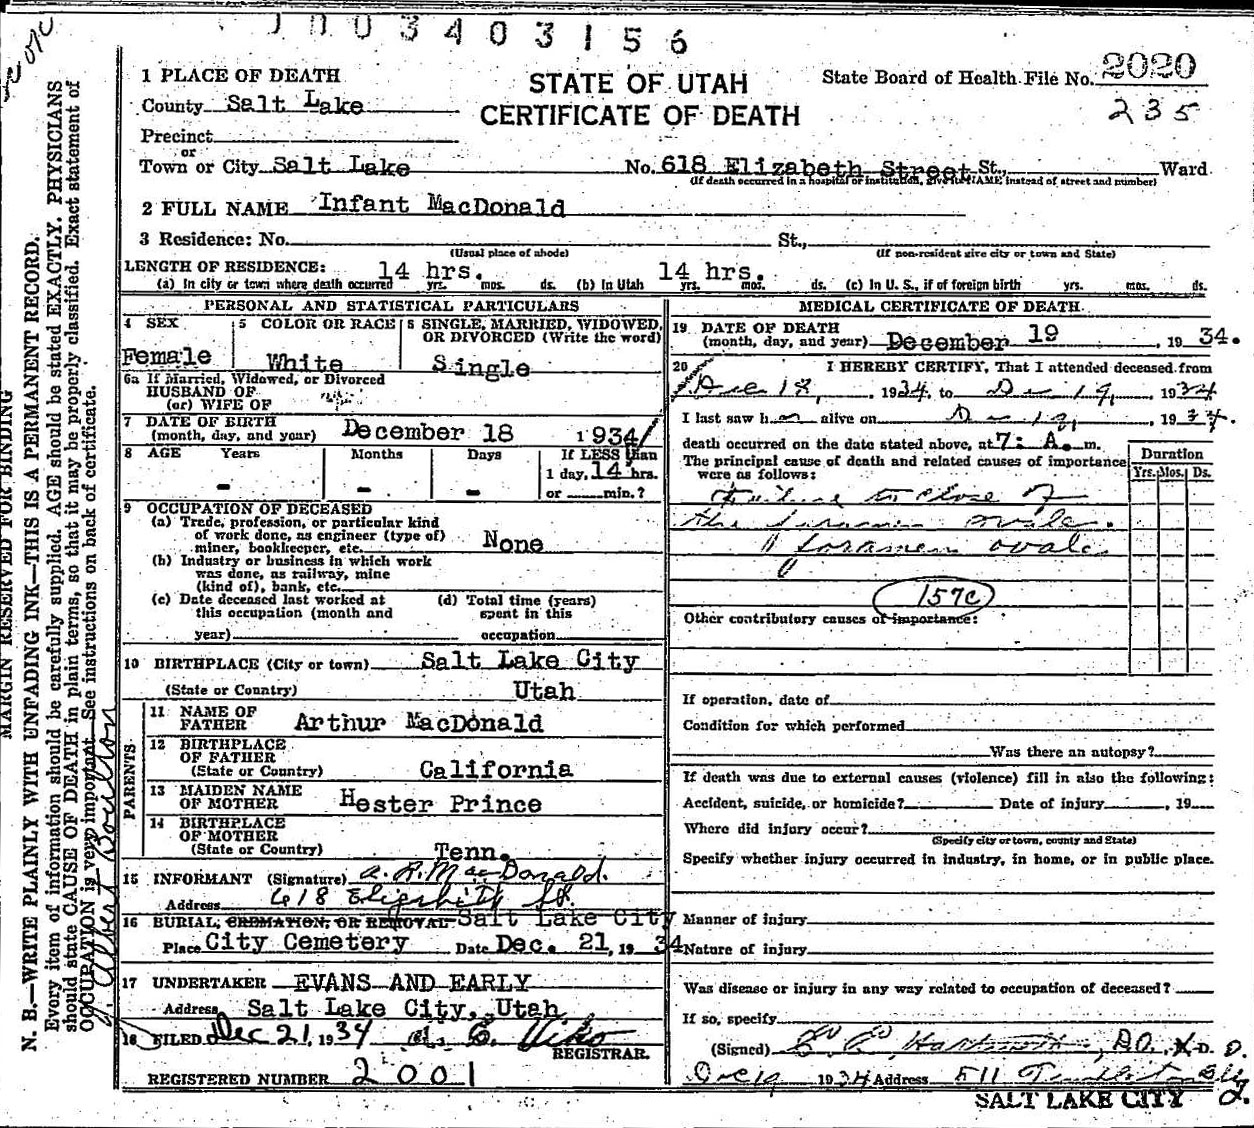 0003403156
1 PLACE OF DEATH
STATE OF UTAH
CERTIFICATE OF DEATH
State Board of Health File No. 2020
235
County Salt Lake
Precinct
or
Town or City Salt Lake No. 618 Elizabeth Street St., Ward
(If death occurred in a hospital or institution, give its NAME instead of street and number)
2 FULL NAME Infant MacDonald
3 Residence: No. St.,
(Usual place of abode) (If non-resident give city or town and State)
LENGTH OF RESIDENCE: 14 hrs. 14 hrs.
(a) In city or town where death occurred yrs. mos. ds. (b) In Utah yrs. mos. ds. (c) In U. S., if of foreign birth yrs. mos. ds.
PERSONAL AND STATISTICAL PARTICULARS
4 SEX 5 COLOR OR RACE 6 SINGLE, MARRIED, WIDOWED, OR DIVORCED (Write the word)
Female White Single
6a If Married, Widowed, or Divorced
HUSBAND OF
(or) WIFE OF
7 DATE OF BIRTH
(month, day, and year) December 18 1934
8 AGE Years Months Days If LESS than
1 day, 14 hrs.
- - - or min.?
9 OCCUPATION OF DECEASED
(a) Trade, profession, or particular kind
of work done, as engineer (type of)
miner, bookkeeper, etc. None
(b) Industry or business in which work
was done, as railway, mine
(kind of), bank, etc.
(c) Date deceased last worked at (d) Total time (years)
this occupation (month and spent in this
year) occupation
10 BIRTHPLACE (City or town) Salt Lake City
(State or Country) Utah
PARENTS
11 NAME OF
FATHER Arthur MacDonald
12 BIRTHPLACE
OF FATHER
(State or Country) California
13 MAIDEN NAME
OF MOTHER Hester Prince
14 BIRTHPLACE
OF MOTHER
(State or Country) Tenn.
15 INFORMANT (Signature) A. R. MacDonald.
Address 618 Elizabeth St.
16 BURIAL, CREMATION, OR REMOVAL Salt Lake City
Place City Cemetery Date Dec. 21, 1934
17 UNDERTAKER EVANS AND EARLY
Address Salt Lake City, Utah
18 FILED Dec 21, 1934
REGISTRAR.
REGISTERED NUMBER 2001
MEDICAL CERTIFICATE OF DEATH
19 DATE OF DEATH
(month, day, and year) December 19, 1934.
20 I HEREBY CERTIFY, That I attended deceased from
Dec 18, 1934, to Dec 19, 1934
I last saw h alive on Dec 19, 1934.
death occurred on the date stated above, at 7: A. m.
The principal cause of death and related causes of importance
were as follows:
Duration
Yrs. Mos. Ds.
Failure to close of
the foramen ovale.
" foramen ovale
157c
Other contributory causes of importance:
If operation, date of
Condition for which performed
Was there an autopsy?
If death was due to external causes (violence) fill in also the following:
Accident, suicide, or homicide? Date of injury , 19
Where did injury occur?
(Specify city or town, county and State)
Specify whether injury occurred in industry, in home, or in public place.
Manner of injury
Nature of injury
Was disease or injury in any way related to occupation of deceased?
If so, specify
(Signed) D.O.
Dec 19 1934 Address 511 Templeton Bldg
SALT LAKE CITY
MARGIN RESERVED FOR BINDING
N. B.—WRITE PLAINLY WTH UNFADING INK—THIS IS A PERMANENT RECORD.
Every item of information should be carefully supplied. AGE should be stated EXACTLY. PHYSICIANS
should state CAUSE OF DEATH in plain terms, so that it may be properly classified. Exact statement of
OCCUPATION is very important. See instructions on back of certificate.